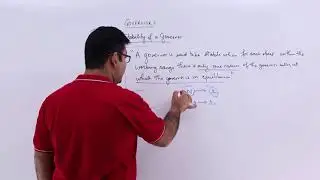 Governors
Stability of a Governor
"A governor is said to be stable when for each speed within the
working range there is only one radius of the governor balls at
which the governor is in equilibrium"